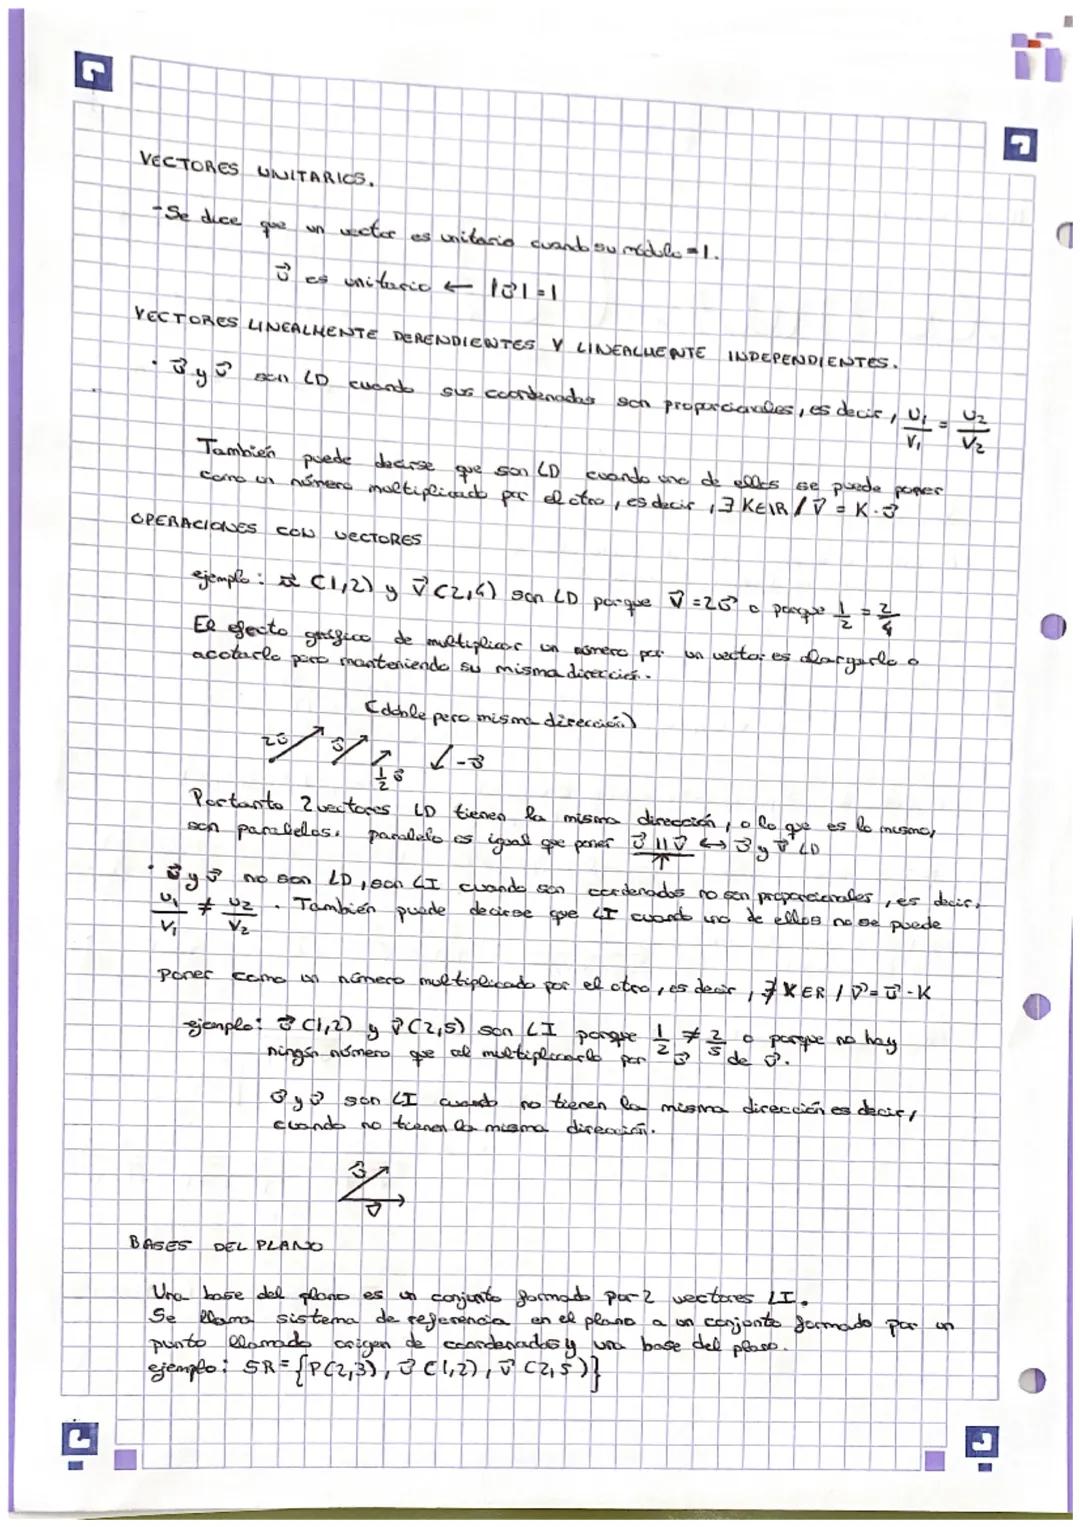 VECTORES UNITARIOS.
-Se dice que un vector es unitario cuando su módulo = 1.
u⃗ es unitario ← |u⃗| = 1
VECTORES LINEALMENTE DEPENDIENTES Y LINEALMENTE INDEPENDIENTES.
· u⃗ y v⃗ son LD cuando sus coordenadas son proporcionales, es decir, U₁/V₁ = U₂/V₂
También puede decirse que son LD cuando uno de ellos se puede poner
como un número multiplicado por el otro, es decir, ∃ K∈IR / v⃗ = K · u⃗
OPERACIONES CON VECTORES
ejemplo: u⃗ (1,2) y v⃗ (2,4) son LD porque v⃗ = 2u⃗ o porque 1/2 = 2/4
El efecto gráfico de multiplicar un número por un vector es alargarlo o
acotarlo pero manteniendo su misma dirección.
(doble pero misma dirección)
2u⃗ u⃗ 1/2 u⃗ -u⃗
Portanto 2 vectores LD tienen la misma dirección, o lo que es lo mismo,
son paralelos. paralelo es igual que poner u⃗ || v⃗ ↔ u⃗ y v⃗ LD
· u⃗ y v⃗ no son LD, son LI cuando son cordenadas no son proporcionales, es decir,
U₁/V₁ ≠ U₂/V₂ . También puede decirse que LI cuando uno de ellos no se puede
poner como un número multiplicado por el otro, es decir, ∄ K∈R / v⃗ = u⃗ · K
ejemplo: u⃗ (1,2) y v⃗ (2,5) son LI porque 1/2 ≠ 2/5 o porque no hay
ningún número que al multiplicarlo por u⃗ de v⃗.
u⃗ y v⃗ son LI cuando no tienen la misma dirección es decir,
cuando no tienen la misma dirección.
u⃗
v⃗
BASES DEL PLANO
Una base del plano es un conjunto formado por 2 vectores LI.
Se llama sistema de referencia en el plano a un conjunto formado por un
punto llamado origen de coordenadas y una base del plano.
ejemplo: SR = {P(2,3), u⃗ (1,2), v⃗ (2,5)}